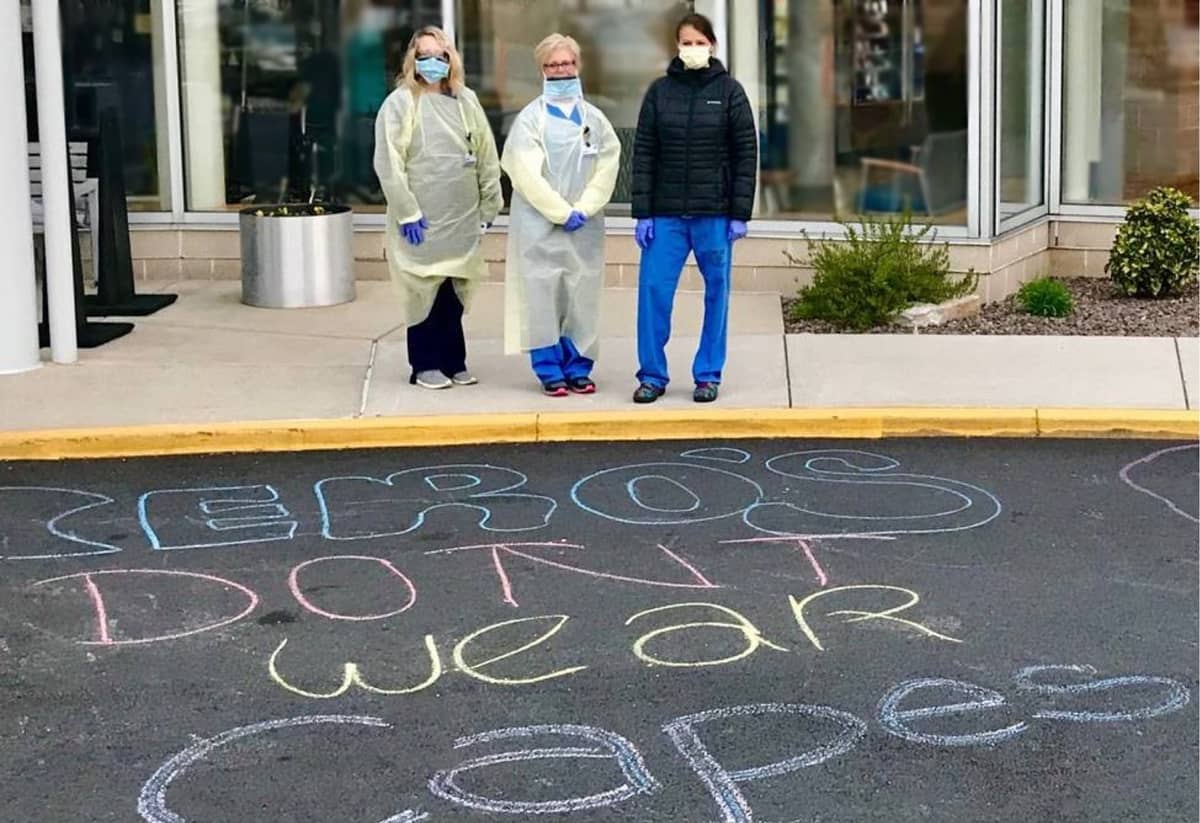 HERO'S
DONT
wear
Capes